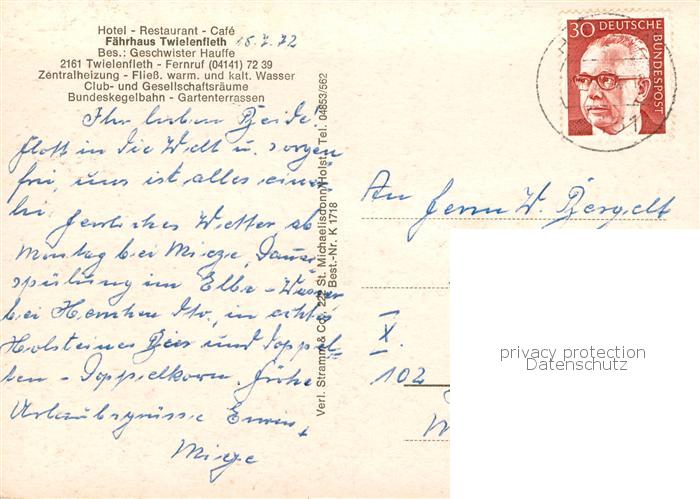 Hotel - Restaurant - Café
Fährhaus Twielenfleth 18.7.72
Bes.: Geschwister Hauffe
2161 Twielenfleth - Fernruf (04141) 72 39
Zentralheizung - Fließ. warm. und kalt. Wasser
Club- und Gesellschaftsräume
Bundeskegelbahn - Gartenterrassen
Ihr lieben Beide!
Flott in die Welt u. sorgen
frei, uns ist alles einer
lei. Herrliches Wetter ab
Montag bei Miege,
spülung im Elbe-Wasser
bei Hemken dto, in echtes
Holsteiner Bier und Doppel
ben - Doppelkorn. Frohe
Urlaubsgrüsse Erwin +
Miege
Verl. Stramm & Co., 222 St. Michaelisdonn/Holst. Tel. 04853/562
Best.-Nr. K 1718
30 DEUTSCHE BUNDESPOST
An Herrn W. Bergelt
X.
102
privacy protection
Datenschutz